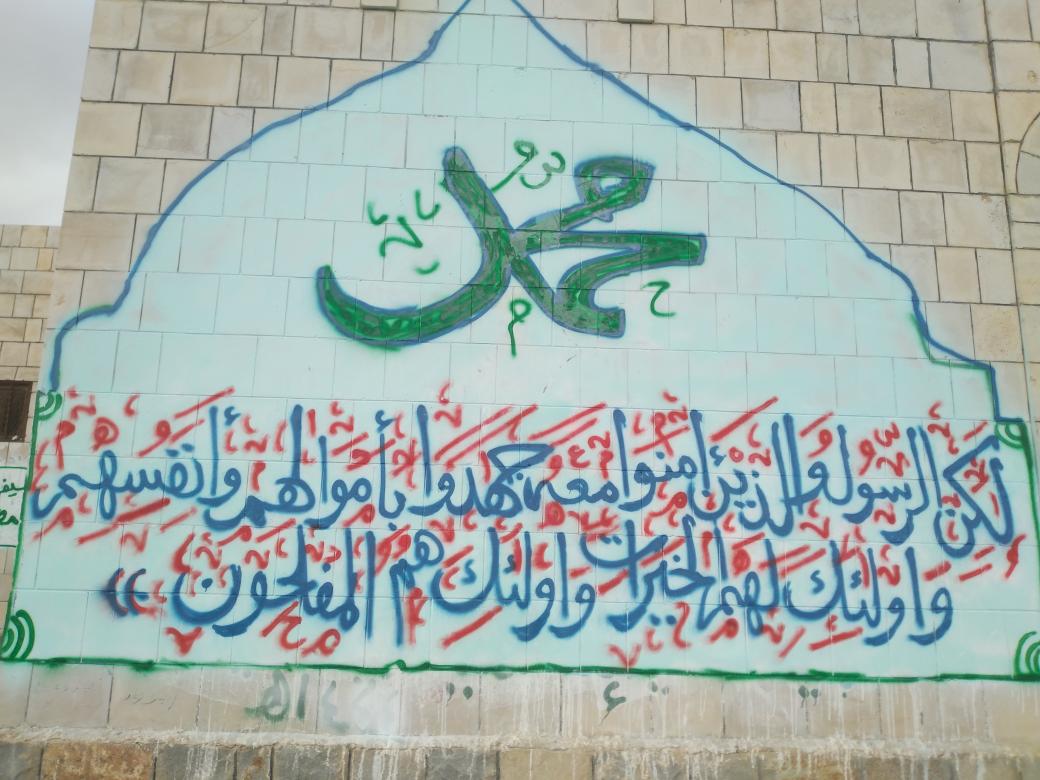 محمد
لكن الرسول والذين ءامنوا معه جهدوا بأموالهم وأنفسهم
وأولئك لهم الخيرات وأولئك هم المفلحون »